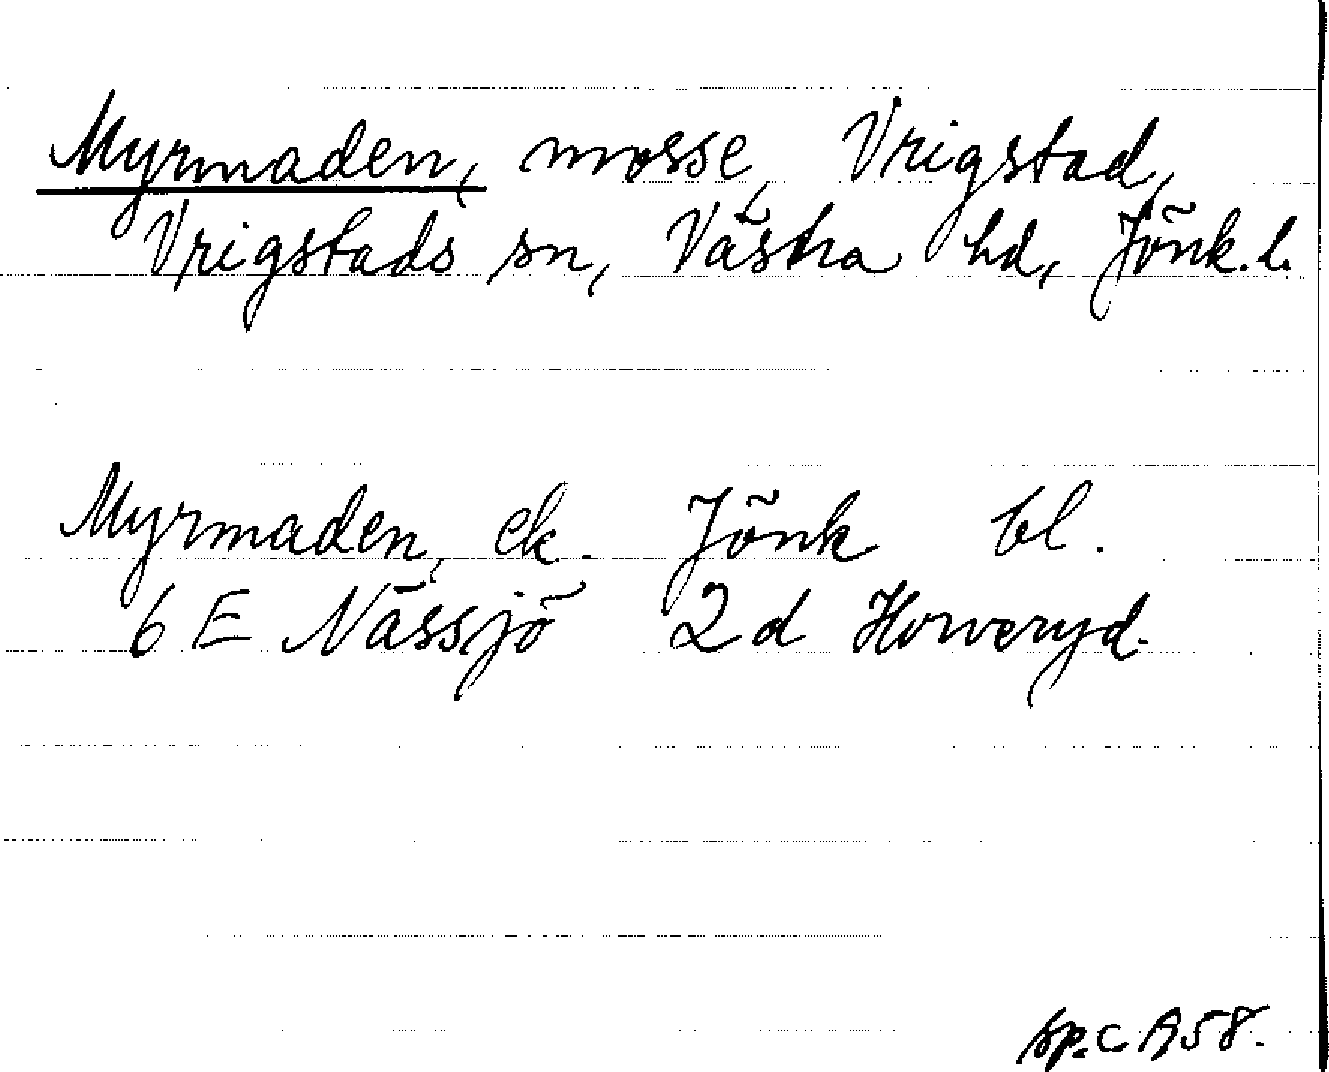 Myrmaden, mosse, Vrigstad,
Vrigstads sn, Västra hd, Jönk.l.
Myrmaden, ek. Jönk bl.
6 E Nässjö 2d Horveryd.
sp.c A58.